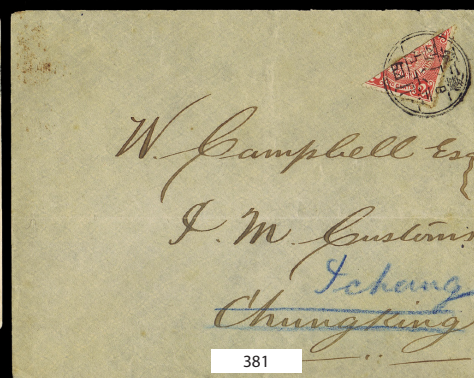 W. Campbell Esq
I. M. Customs
Ichang
Chungking
381